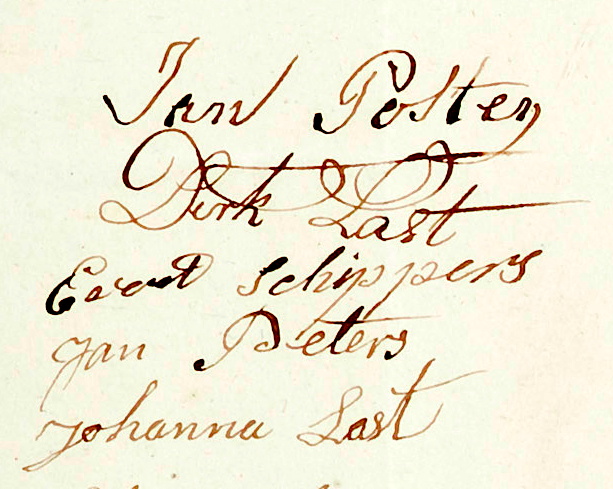 Jan Posten
Dirk Last
Evert Schippers
Jan Peters
Johanna Last